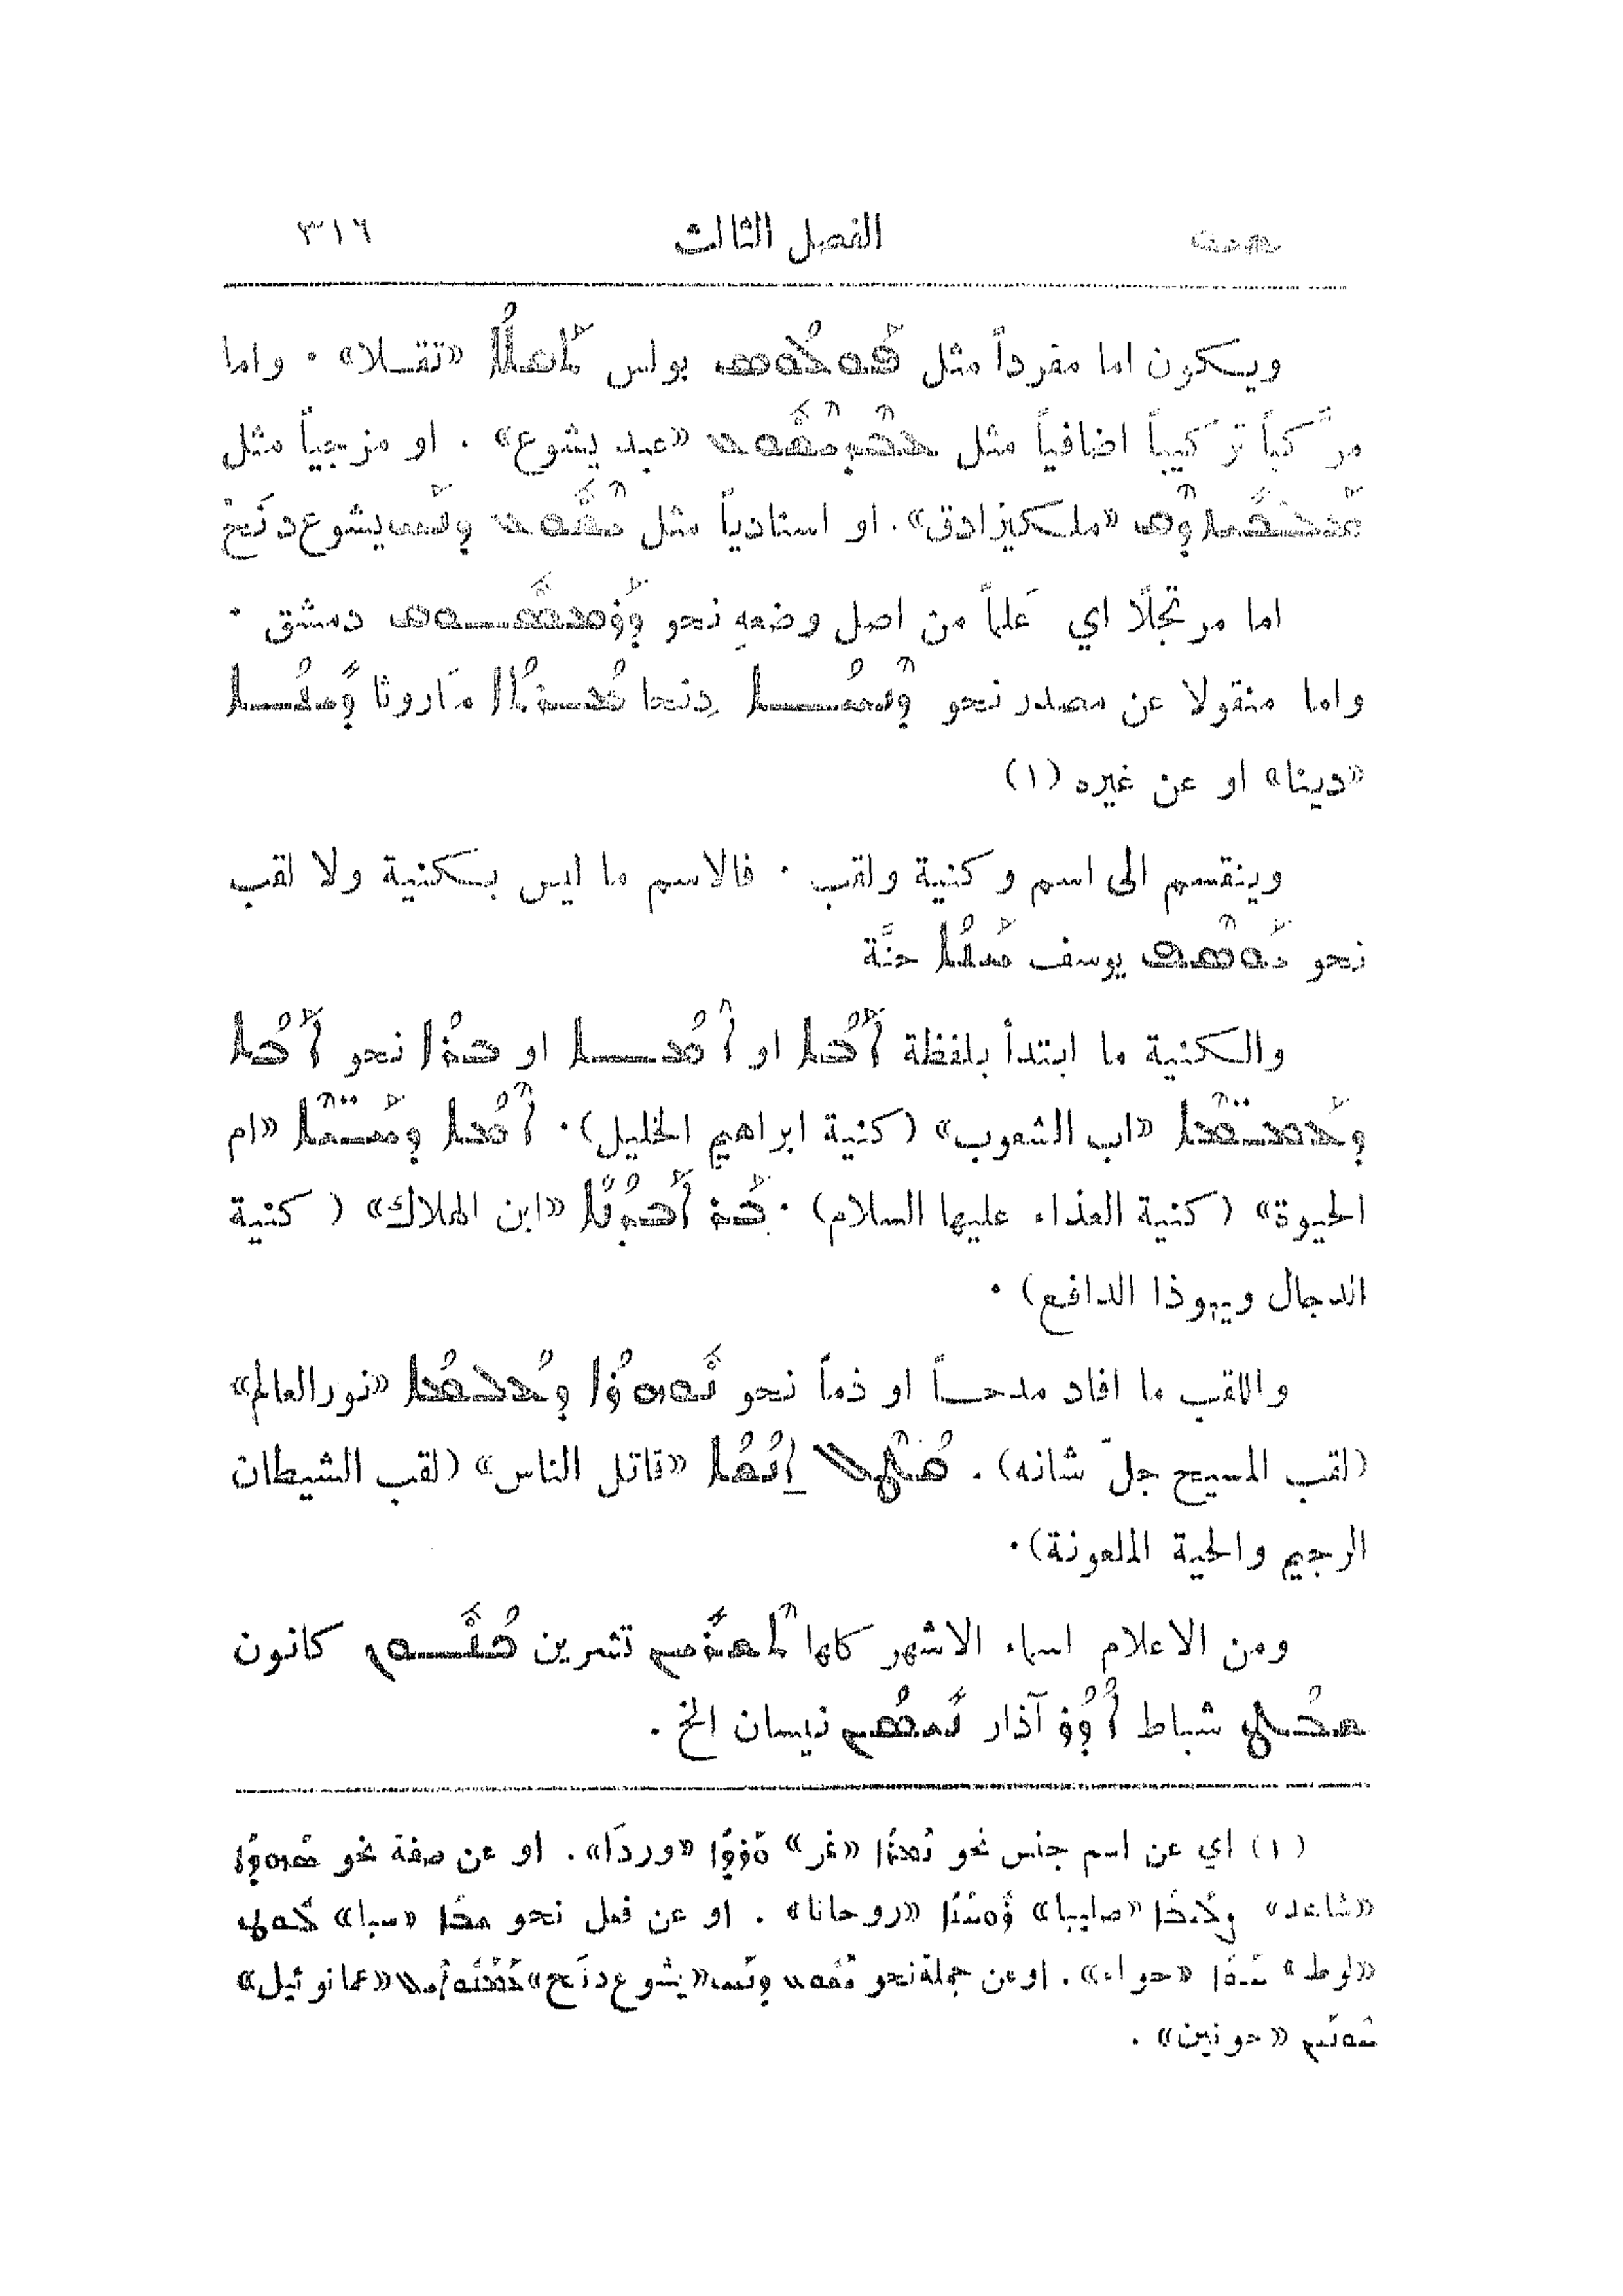 الفصل الثالث ٣١٦
ويكون اما مفرداً مثل ܦܰܘܠܳܘܣ بولس ܬܰܩܠܳܐ «تقلا» · واما
مركَّباً تركيباً اضافياً مثل ܥܒܶܕܝܶܫܽܘܥ «عبد يشوع» . او مزجياً مثل
ܡܰܠܟܺܝܙܕܶܩ «ملكيزادق». او اسنادياً مثل ܝܶܫܽܘܥ ܕܢܰܚ يشوع دنَحْ
اما مرتجلًا اي عَلماً من اصل وضعهِ نحو ܕܰܪܡܣܽܘܩ دمشق ·
واما منقولا عن مصدر نحو ܕܶܢܚܳܐ دِنحا ܡܳܪܽܘܬܳܐ مَاروثا ܕܺܝܢܳܐ
«دينا» او عن غيره (١)
وينقسم الى اسم وكنية ولقب · فالاسم ما ليس بكنية ولا لقب
نحو ܝܰܘܣܶܦ يوسف ܚܰܢܳܐ حنَّة
والكنية ما ابتدأ بلفظة ܐܰܒܳܐ او ܐܶܡܳܐ او ܒܪܳܐ نحو ܐܰܒܳܐ
ܕܥܰܡ̈ܡܶܐ «اب الشعوب» (كنية ابراهيم الخليل)· ܐܶܡܳܐ ܕܚܰܝ̈ܶܐ «ام
الحيوة» (كنية العذراء عليها السلام) · ܒܰܪ ܐܰܒܕܳܢܳܐ «ابن الهلاك» ( كنية
الدجال ويهوذا الدافع) ·
واللقب ما افاد مدحاً او ذماً نحو ܢܽܘܗܪܳܐ ܕܥܳܠܡܳܐ «نور العالم»
(لقب المسيح جلّ شانه) . ܩܳܛܶܠ ܐܢܳܫܳܐ «قاتل الناس» (لقب الشيطان
الرجيم والحية الملعونة)·
ومن الاعلام اسماء الاشهر كلها ܬܶܫܪܺܝܢ تشرين ܟܳܢܽܘܢ كانون
ܫܒܳܛ شباط ܐܳܕܳܪ آذار ܢܺܝܣܳܢ نيسان الخ .
(١) اي عن اسم جنس نحو ܢܶܡܪܳܐ «نمر» ܘܰܪܕܳܐ «وردَا» . او عن صفة نحو ܣܳܗܕܳܐ
«شاهد» ܨܠܺܝܒܳܐ «صليبا» ܪܽܘܚܳܢܳܐ «روحانا» . او عن فعل نحو ܣܒܳܐ «سبا» ܠܽܘܛ
«لوط» ܚܰܘܳܐ «حواء» . او عن جملة نحو ܝܶܫܽܘܥ ܕܢܰܚ «يشوع دنَح» ܥܰܡܢܽܘܐܝܠ «عمانوئيل»
«حونين» .